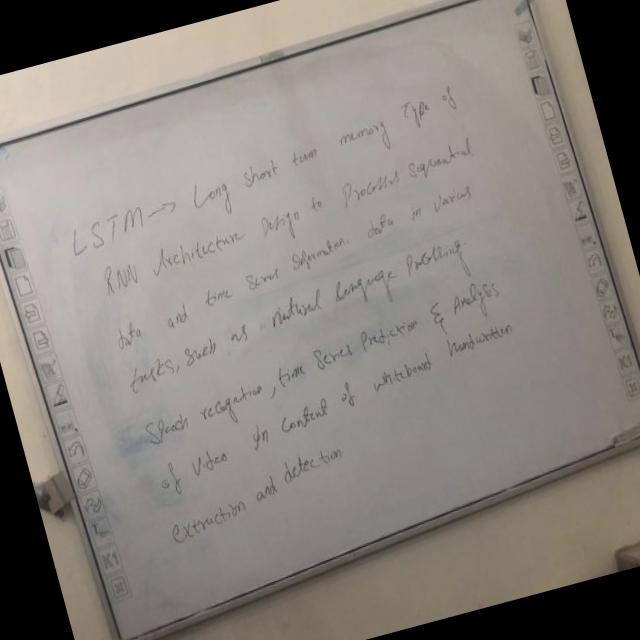 LSTM → Long short term memory Type of
RNN Architecture Design to Processed sequential
data and time series data in various
tasks, such as Natural Language Processing
Speech recognition, time Series Prediction & Analysis
of Video in Context of whiteboard handwritten
Extraction and detection